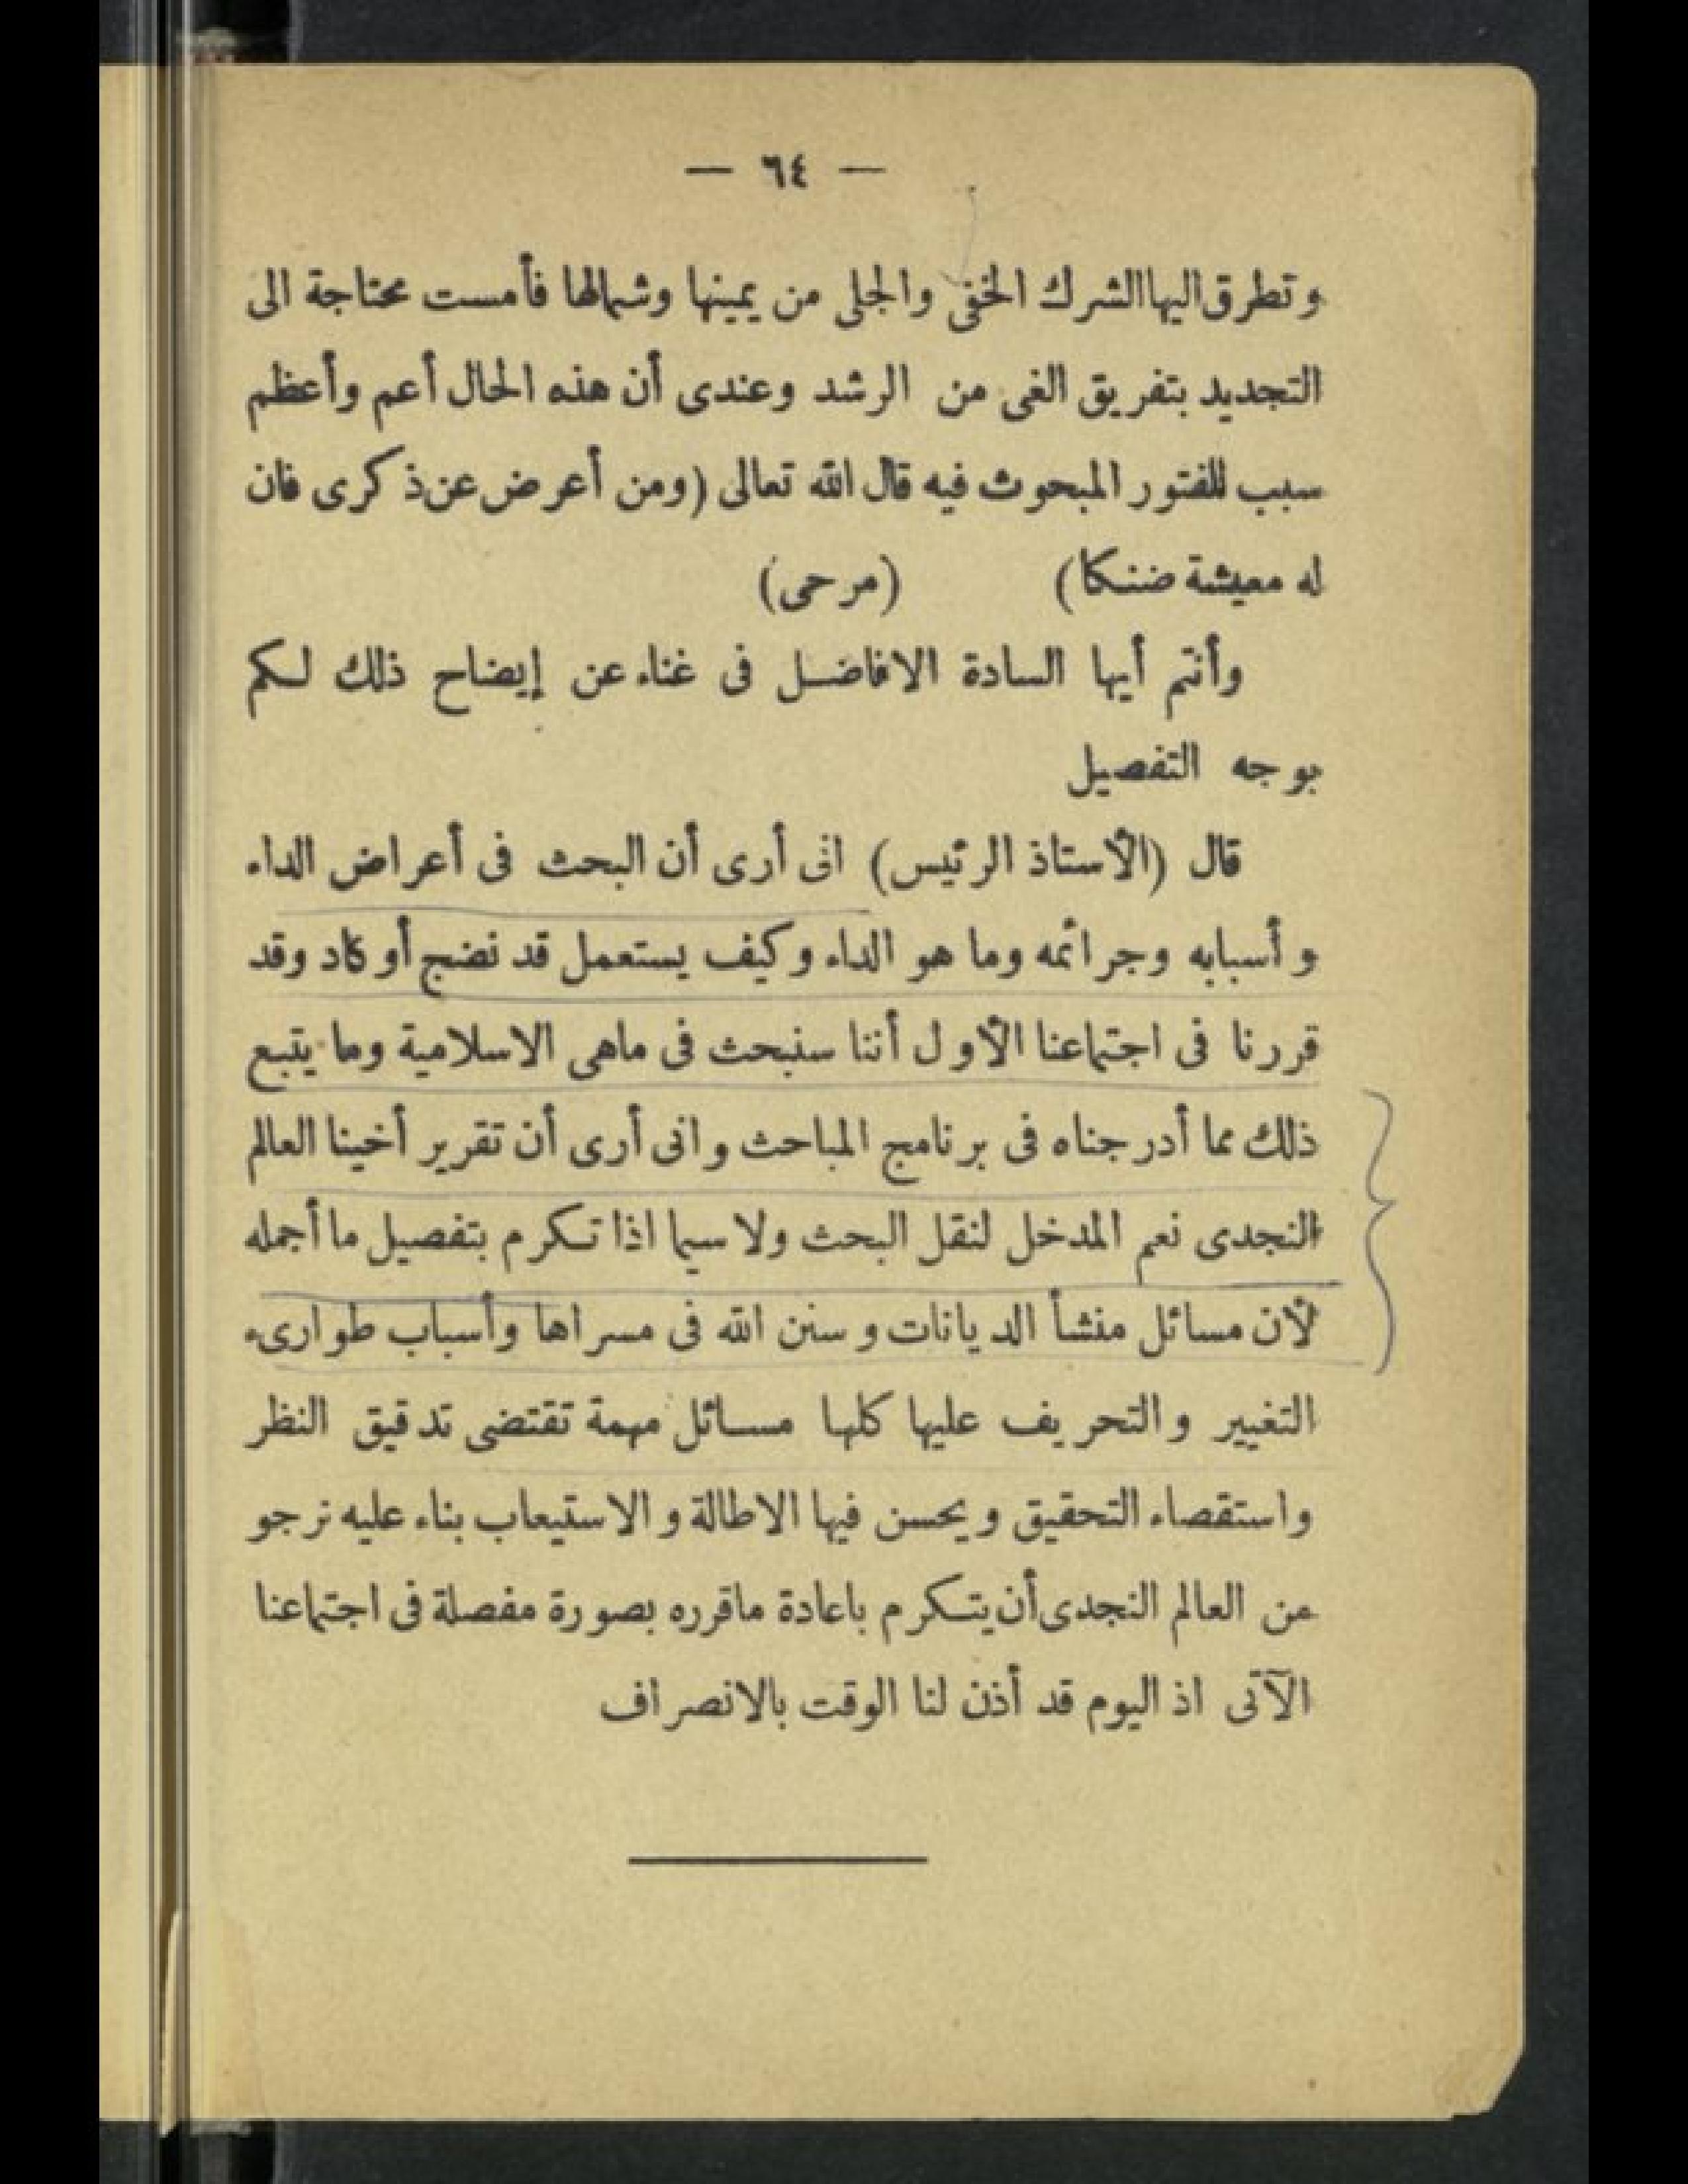 — ٦٤ —
وتطرق اليها الشرك الخفى والجلى من يمينها وشمالها فأمست محتاجة الى
التجديد بتفريق الغى من الرشد وعندى أن هذه الحال أعم وأعظم
سبب للفتور المبحوث فيه قال الله تعالى (ومن أعرض عن ذكرى فان
له معيشة ضنكا) (مرحى)
وأنتم أيها السادة الافاضل فى غناء عن إيضاح ذلك لكم
بوجه التفصيل
قال (الأستاذ الرئيس) انى أرى أن البحث فى أعراض الداء
وأسبابه وجراثمه وما هو الداء وكيف يستعمل قد نضج أو كاد وقد
قررنا فى اجتماعنا الأول أننا سنبحث فى ماهى الاسلامية وما يتبع
ذلك مما أدرجناه فى برنامج المباحث وانى أرى أن تقرير أخينا العالم
النجدى نعم المدخل لنقل البحث ولا سيما اذا تكرم بتفصيل ما أجمله
لأن مسائل منشأ الديانات وسنن الله فى مسراها وأسباب طوارىء
التغيير والتحريف عليها كلها مسائل مهمة تقتضى تدقيق النظر
واستقصاء التحقيق ويحسن فيها الاطالة والاستيعاب بناء عليه نرجو
من العالم النجدى أن يتكرم باعادة ماقرره بصورة مفصلة فى اجتماعنا
الآتى اذ اليوم قد أذن لنا الوقت بالانصراف